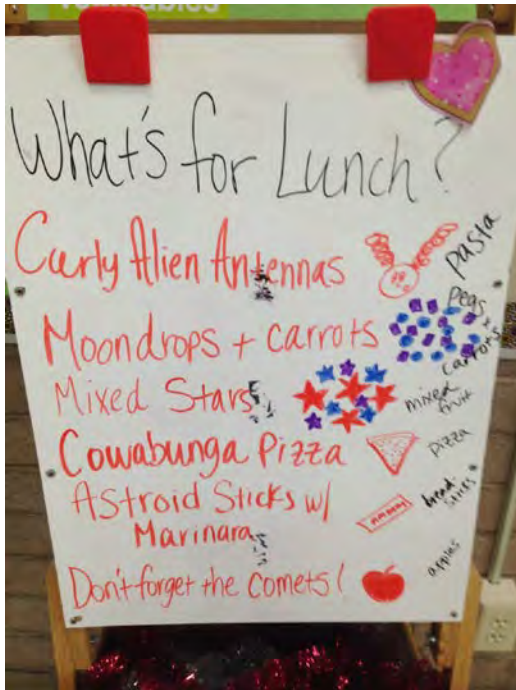 What's for Lunch?
Curly Alien Antennas
pasta
Moondrops + carrots
peas +
carrots
Mixed Stars
mixed
fruit
Cowabunga Pizza
pizza
Astroid Sticks w/
Marinara
bread-
sticks
Don't forget the comets!
apples